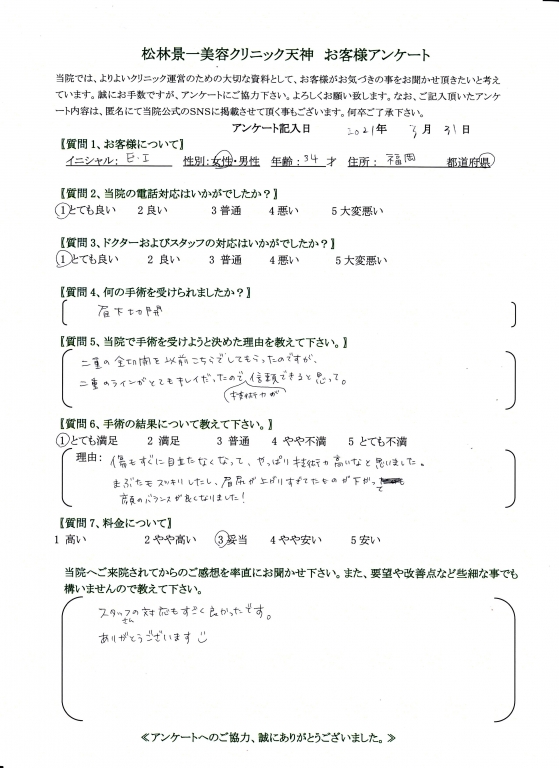 松林景一美容クリニック天神　お客様アンケート
当院では、よりよいクリニック運営のための大切な資料として、お客様がお気づきの事をお聞かせ頂きたいと考え
ています。誠にお手数ですが、アンケートにご協力下さい。よろしくお願い致します。なお、ご記入頂いたアンケ
ート内容は、匿名にて当院公式のSNSに掲載させて頂く事もございます。何卒ご了承下さい。
アンケート記入日　2021年　3月　31日
〖質問１、お客様について〗
イニシャル：　E・I　性別：女性・男性　年齢：34才　住所：　福岡　都道府県
〖質問２、当院の電話対応はいかがでしたか？〗
１とても良い　２良い　３普通　４悪い　５大変悪い
〖質問３、ドクターおよびスタッフの対応はいかがでしたか？〗
１とても良い　２ 良い　３ 普通　４悪い　５大変悪い
〖質問４、何の手術を受けられましたか？〗
眉下切開
〖質問５、当院で手術を受けようと決めた理由を教えて下さい。〗
二重の全切開を以前こちらでしてもらったのですが、
二重のラインがとてもキレイだったので、技術力が信頼できると思って。
〖質問６、手術の結果について教えて下さい。〗
１とても満足　２ 満足　３ 普通　４ やや不満　５ とても不満
理由：　傷もすぐに目立たなくなって、やっぱり技術力高いなと思いました。
まぶたもスッキリしたし、眉尻が上がりすぎてたものが下がって
顔のバランスが良くなりました！
〖質問７、料金について〗
１ 高い　２やや高い　３妥当　４やや安い　５安い
当院へご来院されてからのご感想を率直にお聞かせ下さい。また、要望や改善点など些細な事でも
構いませんので教えて下さい。
スタッフさんの対応もすごく良かったです。
ありがとうございます
≪アンケートへのご協力、誠にありがとうございました。≫